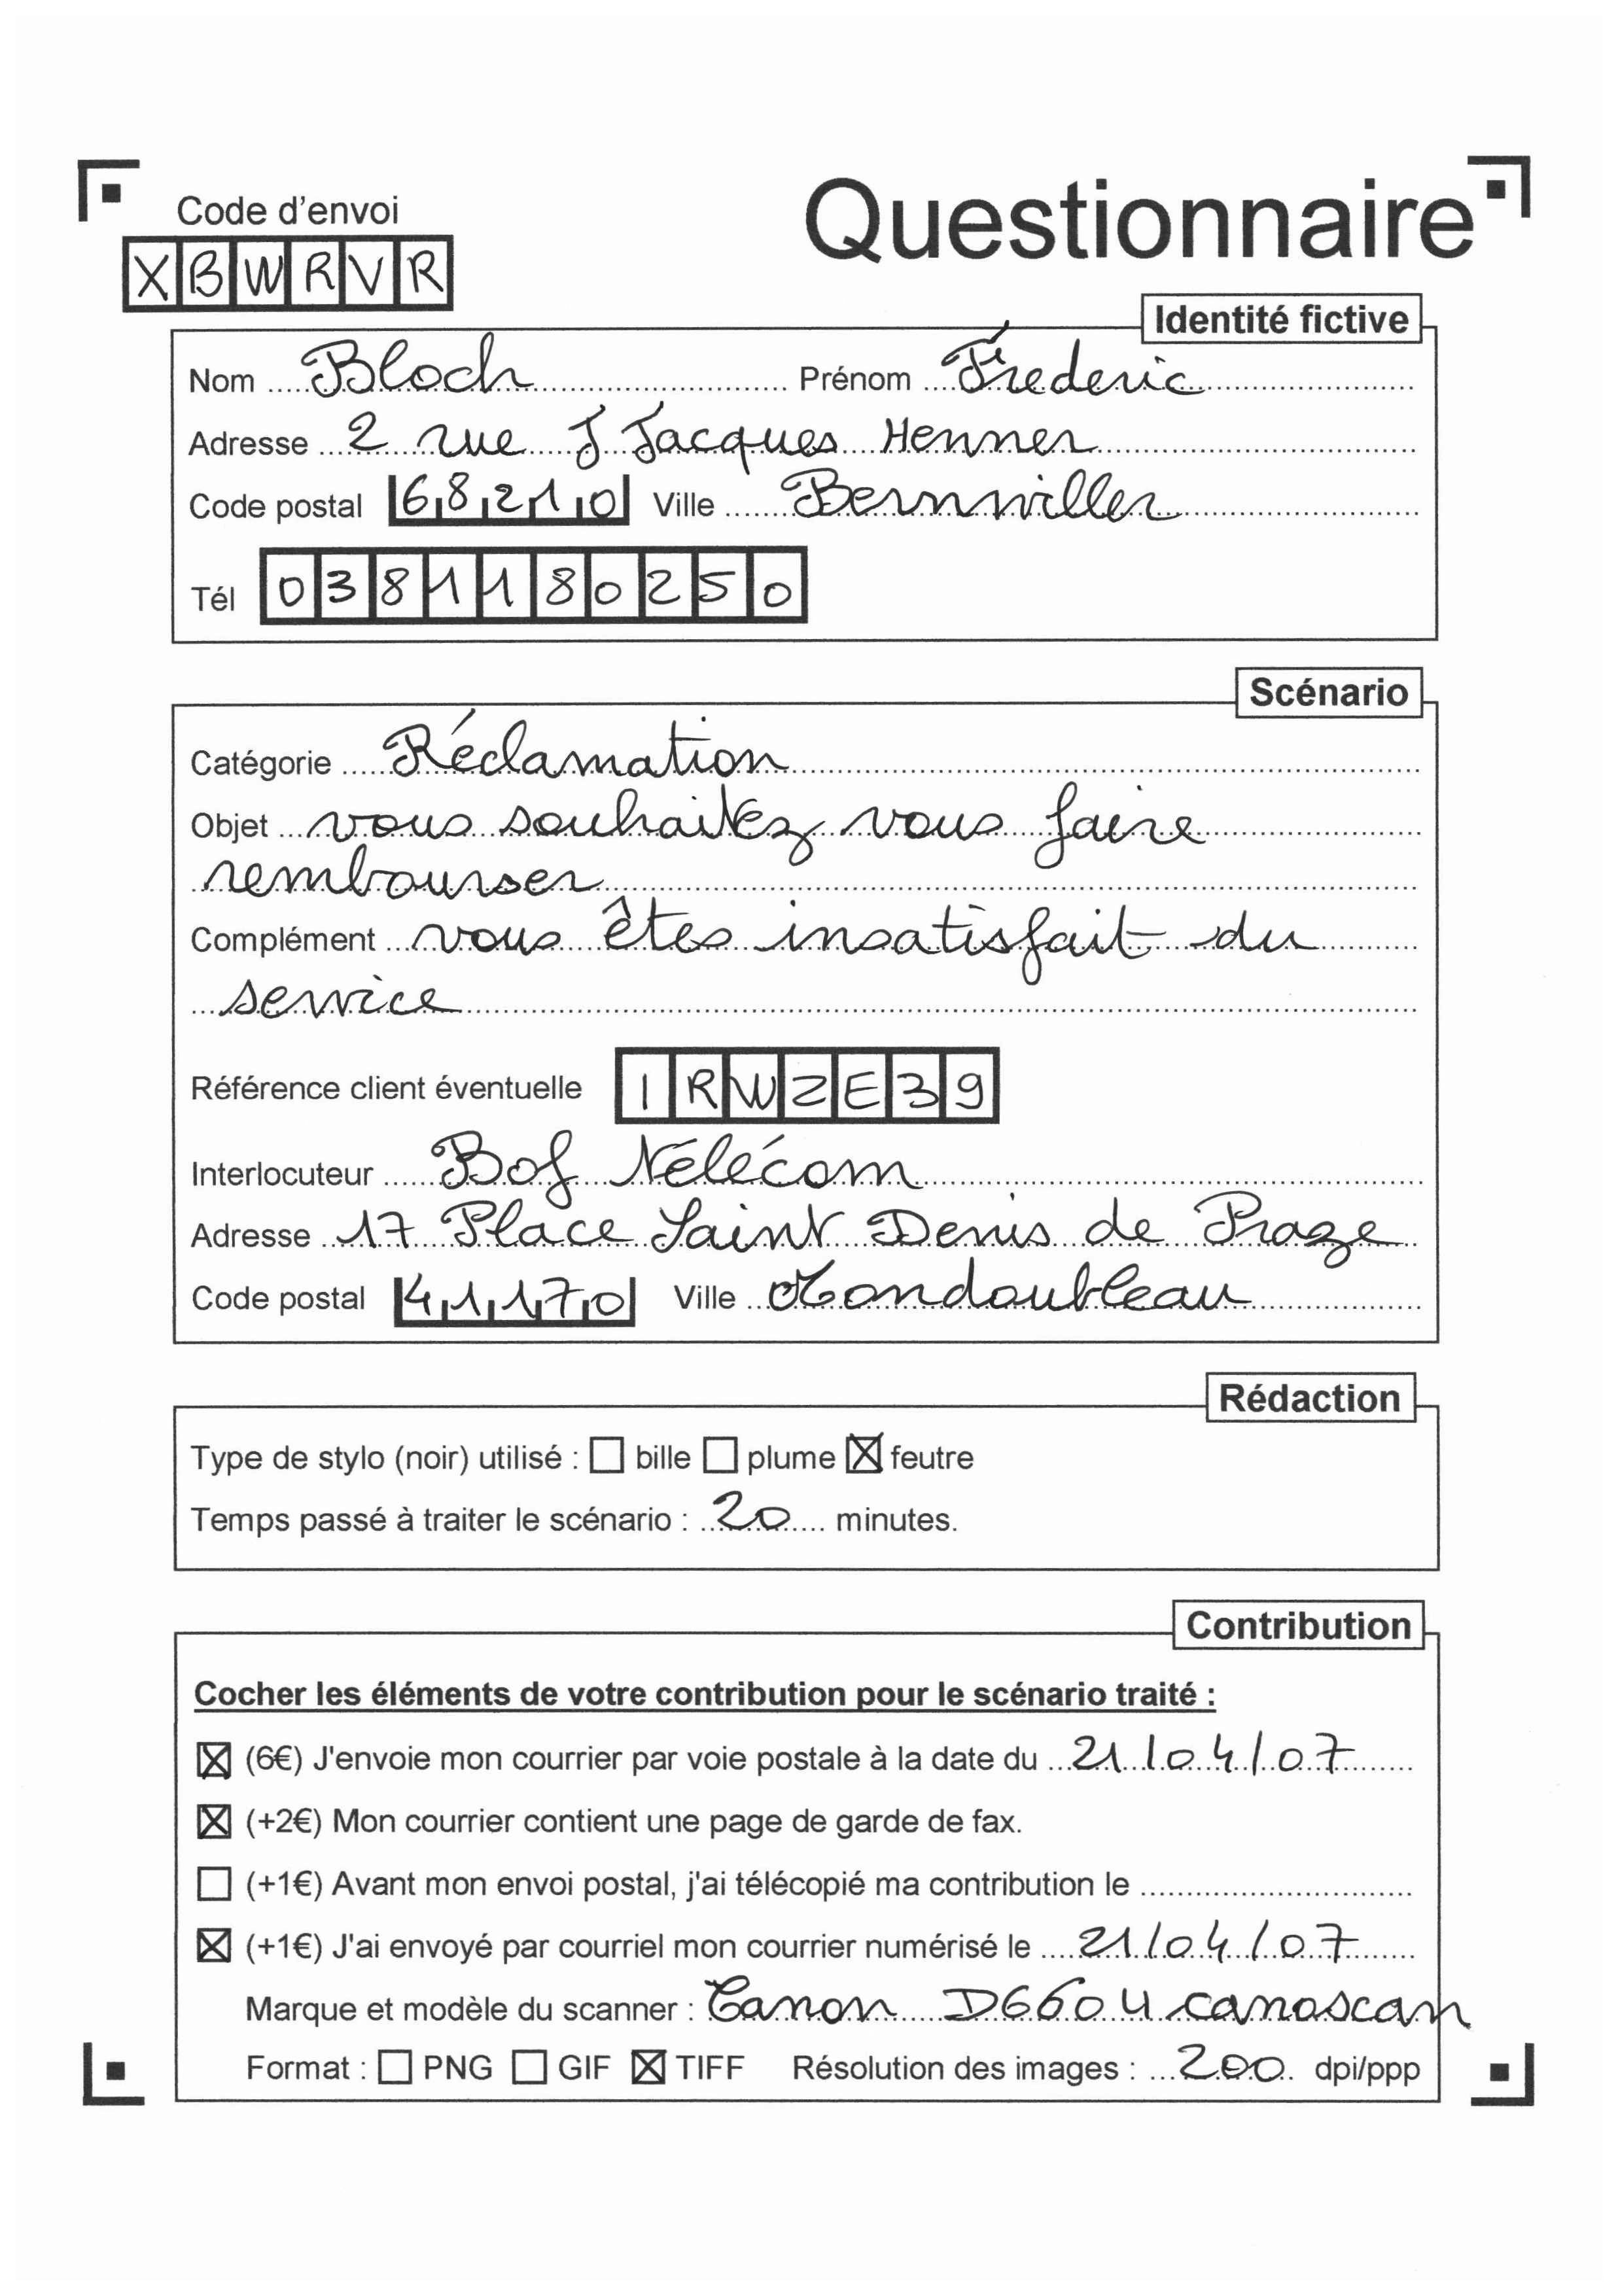 Questionnaire
Code d'envoi
XBWRVR
Identité fictive
Nom Bloch Prénom Fréderic
Adresse 2 rue J Jacques Henner
Code postal 68210 Ville Bernwiller
Tél 0381180250
Scénario
Catégorie Réclamation
Objet vous souhaitez vous faire
rembourser
Complément vous êtes insatisfait du
service
Référence client éventuelle IRWZE39
Interlocuteur Bof Télécom
Adresse 17 Place Saint Denis de Prage
Code postal 41170 Ville Mondoubleau
Rédaction
Type de stylo (noir) utilisé : ☐ bille ☐ plume ☒ feutre
Temps passé à traiter le scénario : 20 minutes.
Contribution
Cocher les éléments de votre contribution pour le scénario traité :
☒ (6€) J'envoie mon courrier par voie postale à la date du 21/04/07
☒ (+2€) Mon courrier contient une page de garde de fax.
☐ (+1€) Avant mon envoi postal, j'ai télécopié ma contribution le
☒ (+1€) J'ai envoyé par courriel mon courrier numérisé le 21/04/07
Marque et modèle du scanner : Canon D660U canoscan
Format : ☐ PNG ☐ GIF ☒ TIFF Résolution des images : 200 dpi/ppp